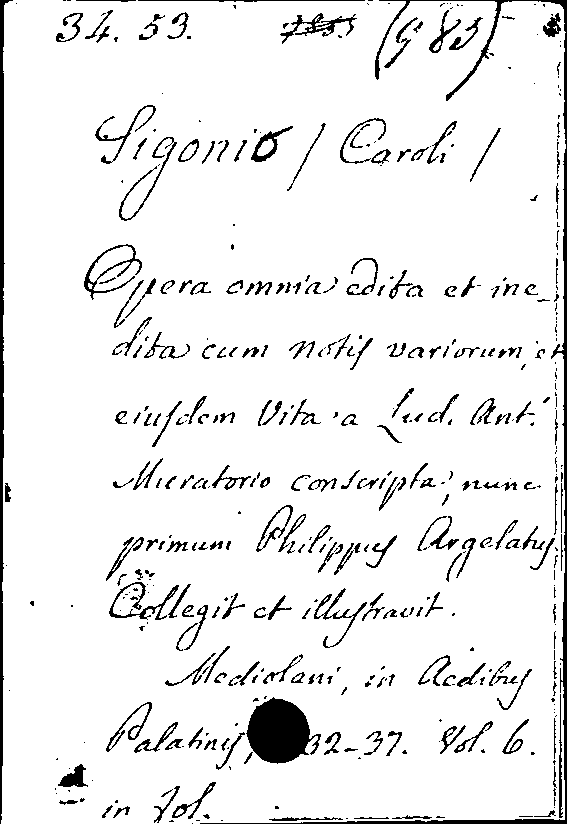 34. 53. (983)
Sigonio / Caroli /
Opera omnia edita et ine-
dita cum notis variorum, et
eiusdem Vita a Lud. Ant.
Muratorio conscripta, nunc
primum Philippus Argelatus
Collegit et illustravit.
Mediolani, in Aedibus
Palatinis, 32-37. Vol. 6.
in fol.